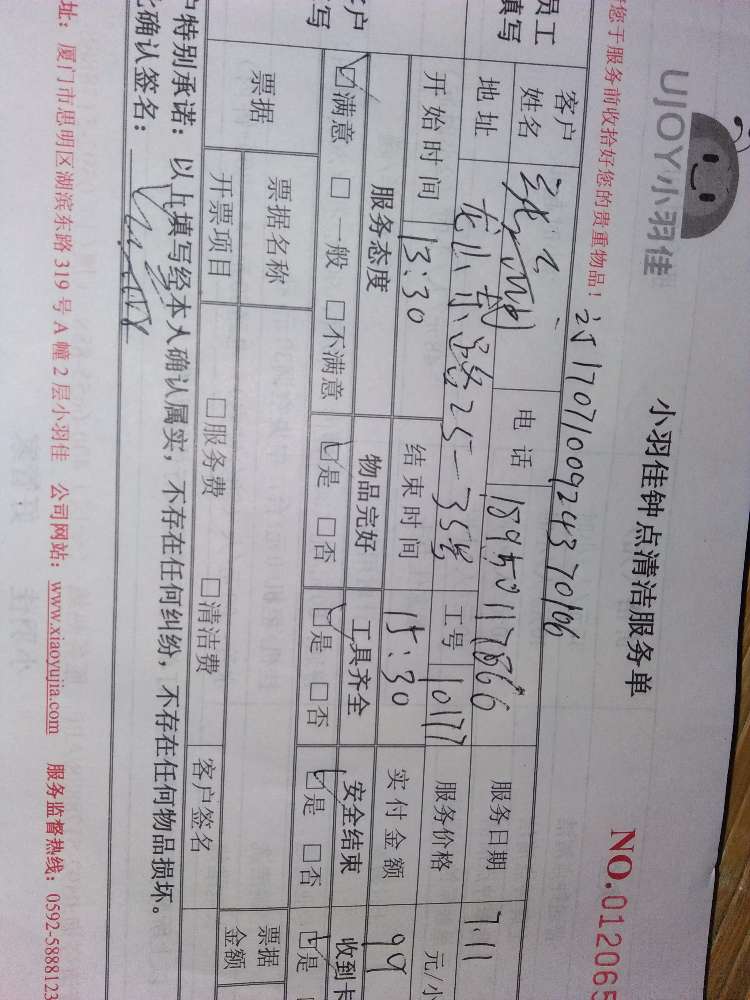 UJOY小羽佳
小羽佳钟点清洁服务单
NO.012065
您于服务前收拾好您的贵重物品！
170710092437066
员工
填写
客户
姓名
电话 18950117866 服务日期 7.11
地址 25-35号 工号 10177 服务价格 元/小
开始时间 13:30 结束时间 15:30 实付金额 99
客户
写
服务态度 物品完好 工具齐全 安全结束 收到卡
☑满意 □一般 □不满意 ☑是 □否 ☑是 □否 ☑是 □否 ☑是
票据 票据名称 票据
金额
开票项目 □服务费 □清洁费 客户签名
户特别承诺：以上填写经本人确认属实，不存在任何纠纷，不存在任何物品损坏。
此确认签名：
址：厦门市思明区湖滨东路 319 号 A 幢 2 层小羽佳 公司网站：www.xiaoyujia.com 服务监督热线：0592-5888123